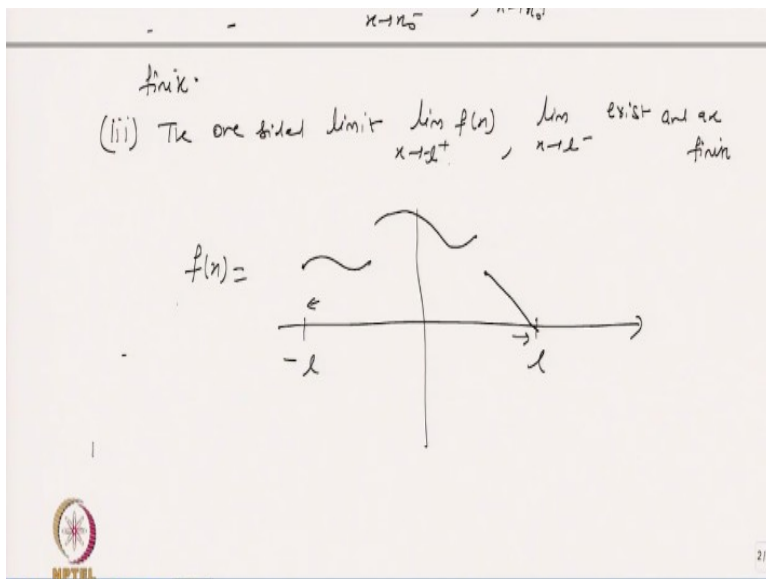 x→x₀⁻ , x→x₀⁺
finite.
(iii) The one sided limit lim f(x) , lim exist and are
x→-l⁺ x→l⁻ finite
f(x) =
-l l
NPTEL
2/